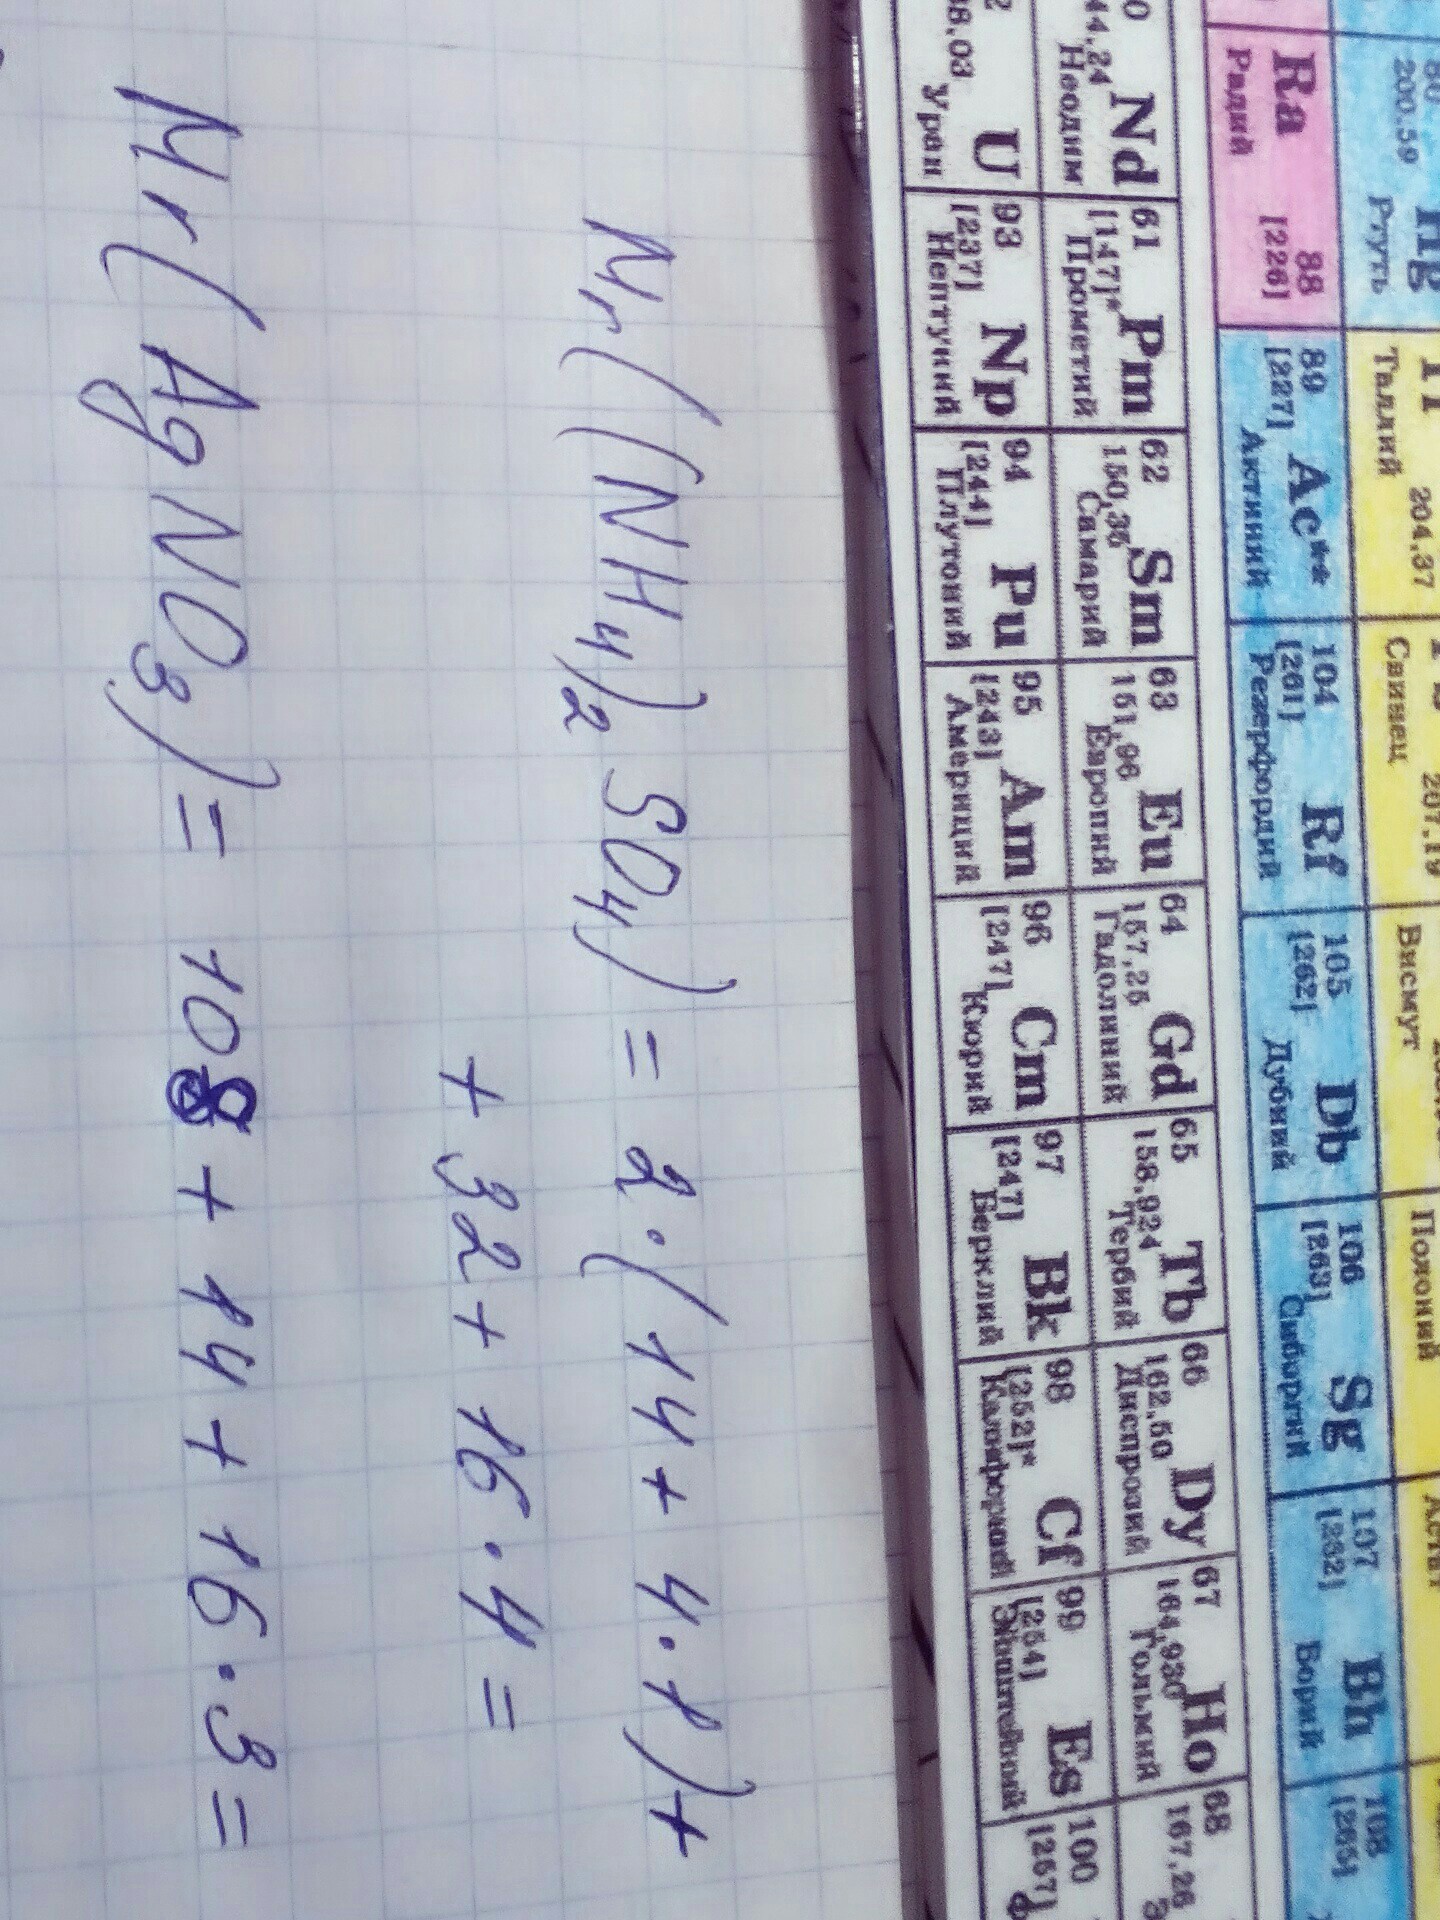 80 Hg 204,37 207,19
200,59 Ртуть Таллий Свинец Висмут Полоний Астат
Ra 88 89 Ac** 104 Rf 105 Db 106 Sg 107 Bh 108
Радий [226] [227] Актиний [261] Резерфордий [262] Дубний [263] Сиборгий [262] Борий [265]
Nd 61 Pm 62 Sm 63 Eu 64 Gd 65 Tb 66 Dy 67 Ho 68
44,24 Неодим [147]* Прометий 150,35 Самарий 151,96 Европий 157,25 Гадолиний 158,924 Тербий 162,50 Диспрозий 164,930 Гольмий 167,26
U 93 Np 94 Pu 95 Am 96 Cm 97 Bk 98 Cf 99 Es 100
38,03 Уран [237] Нептуний [244] Плутоний [243] Америций [247] Кюрий [247] Берклий [252]* Калифорний [254] Эйнштейний [257]
Mr((NH4)2SO4) = 2·(14 + 4·1) +
+ 32 + 16·4 =
Mr(AgNO3) = 108 + 14 + 16·3 =